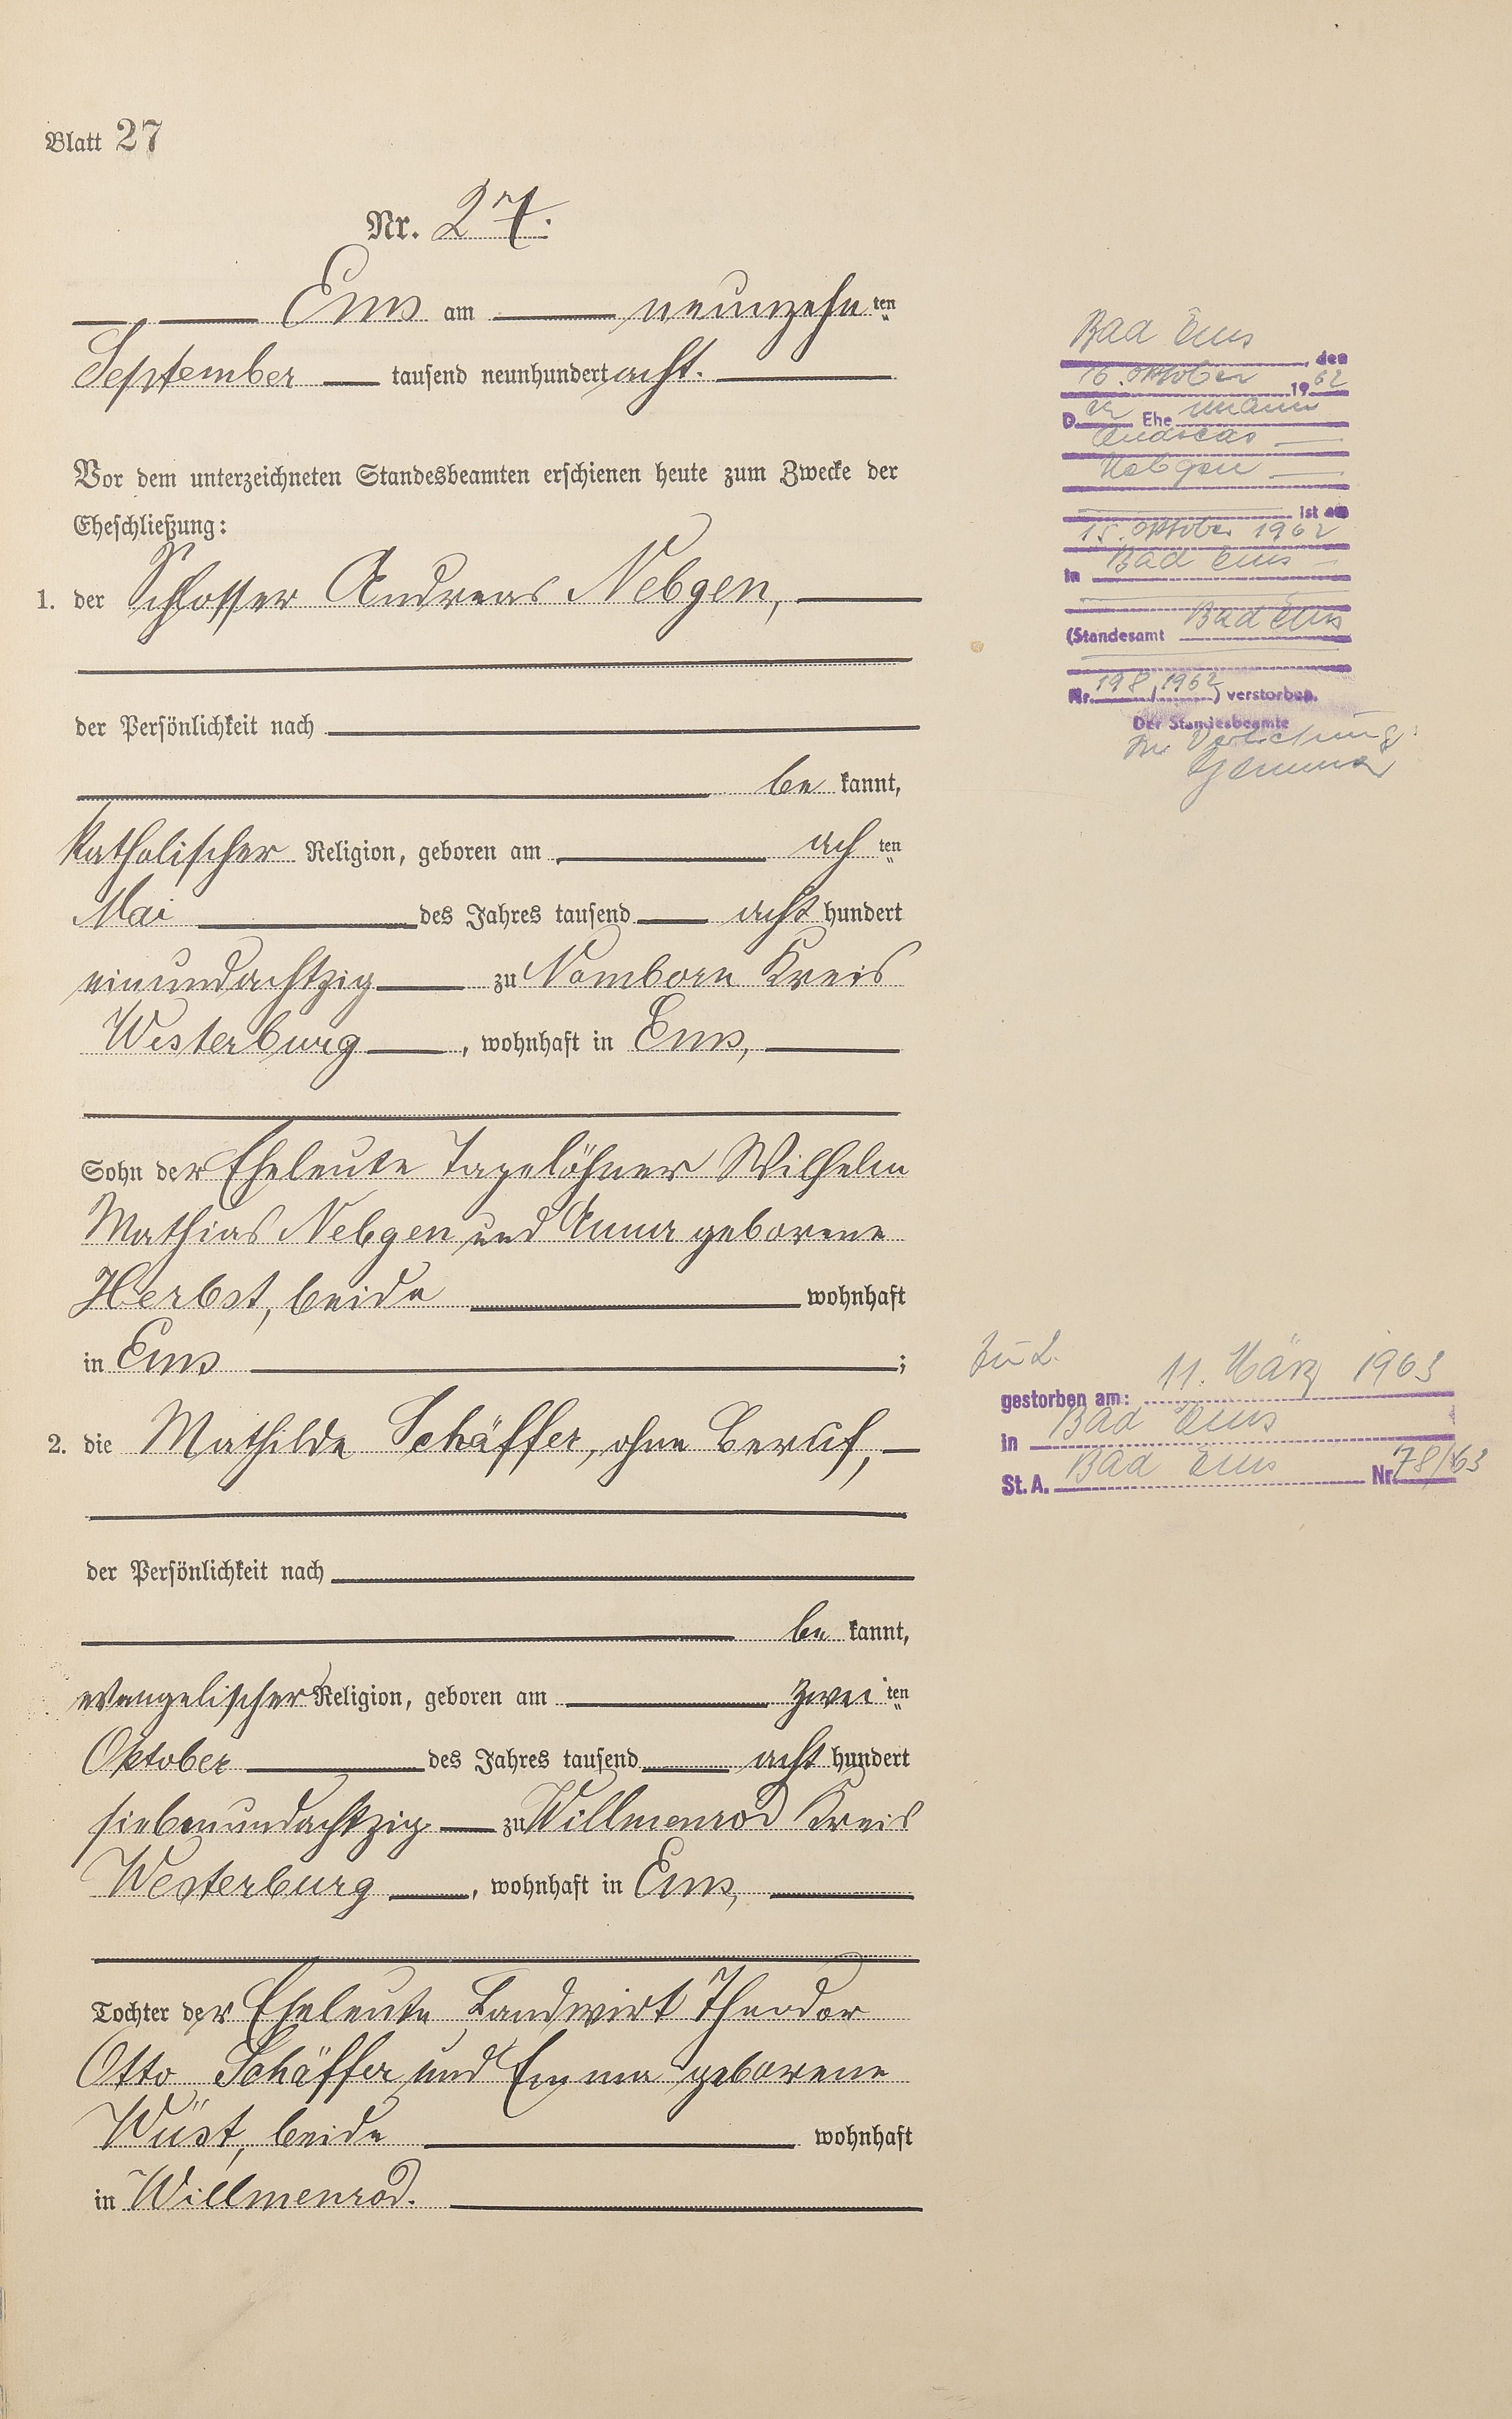 Blatt 27
Nr. 27.
Ems am neunzehnten
September tausend neunhundert acht.
Vor dem unterzeichneten Standesbeamten erschienen heute zum Zwecke der
Eheschließung:
1. der Schlosser Andreas Nebgen,
der Persönlichkeit nach
be kannt,
katholischer Religion, geboren am achten
Mai des Jahres tausend acht hundert
einundachtzig zu Nomborn Kreis
Westerburg, wohnhaft in Ems,
Sohn der Eheleute Tagelöhner Wilhelm
Mathias Nebgen und Anna geborene
Herbst, beide wohnhaft
in Ems;
2. die Mathilde Schäffer, ohne Beruf,
der Persönlichkeit nach
be kannt,
evangelischer Religion, geboren am zweiten
Oktober des Jahres tausend acht hundert
siebenundachtzig zu Willmenrod Kreis
Westerburg, wohnhaft in Ems,
Tochter der Eheleute Landwirt Theodor
Otto Schäffer und Emma geborene
Wüst, beide wohnhaft
in Willmenrod.
Bad Ems
, den
16. Oktober 1962
Der Ehemann
Andreas
Nebgen
ist am
15. Oktober 1962
in Bad Ems
(Standesamt Bad Ems
Nr. 198/1962) verstorben.
Der Standesbeamte
In Vertretung:
Zu 2.
gestorben am: 11. März 1963
in Bad Ems
St. A. Bad Ems Nr. 78/63